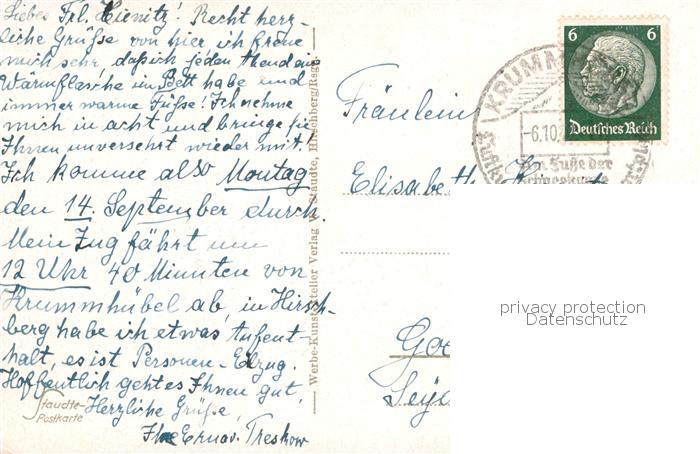 Liebes Frl. Hienitz! Recht herz-
liche Grüße von hier, ich freue
mich sehr, daß ich jeden Abend eine
Wärmflasche im Bett habe und
immer warme Füße! Ich nehme
mich in acht und bringe sie
Ihnen unversehrt wieder mit!
Ich komme also Montag
den 14. September durch.
Mein Zug fährt um
12 Uhr 40 Minuten von
Krummhübel ab, in Hirsch-
berg habe ich etwas Aufent-
halt, es ist Personen-Eilzug.
Hoffentlich geht es Ihnen gut,
Herzliche Grüße,
Treskow
Staudte-
Postkarte
Werbe-Kunst Verlag W. Staudte, Hirschberg/Rsgb.
Fräulein
Elisabeth
6 6
Deutsches Reich
KRUMM
-6.10.
Am Fuße der
privacy protection
Datenschutz